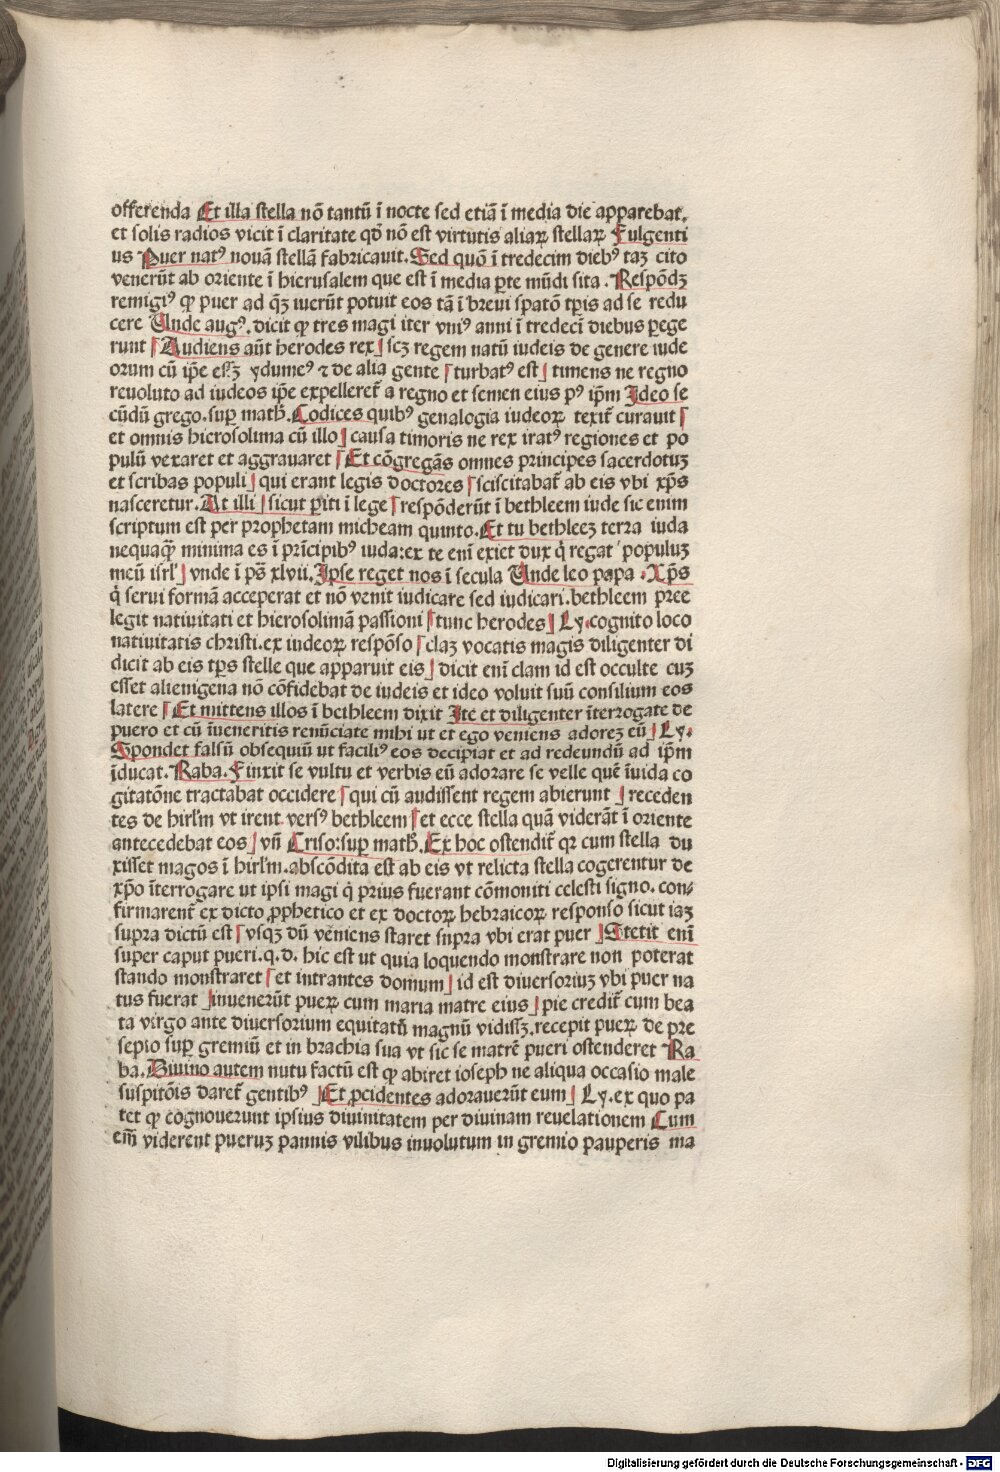 offerenda Et illa stella nō tantū ī nocte sed etiā ī media die apparebat.
et solis radios vicit ī claritate qď nō est virtutis aliaꝝ stellaꝝ Fulgenti
us Puer natꝰ nouā stellā fabricauit. Sed quō ī tredecim diebꝰ taꝫ cito
venerūt ab oriente ī hierusalem que est ī media ꝑte mūdi sita. Respōdꝫ
remigiꝰ ꝙ puer ad qꝫ iuerūt potuit eos tā ī breui spatō tꝑis ad se redu
cere Unde augꝰ. dicit ꝙ tres magi iter vniꝰ anni ī tredecī diebus ꝑege
runt Audiens aūt herodes rex scꝫ regem natū iudeis de genere iude
orum cū ip̄e esꝫ ydumeꝰ ⁊ de alia gente turbatꝰ est timens ne regno
reuoluto ad iudeos ip̄e expelleret̄ a regno et semen eius pꝰ ip̄m Ideo se
cūdū grego. suꝑ math̄. Codices quibꝰ genalogia iudeoꝝ texit̄ curauit
et omnis hierosolima cū illo causa timoris ne rex iratꝰ regiones et po
pulū vexaret et aggrauaret Et cōgregās omnes principes sacerdotuꝫ
et scribas populi qui erant legis doctores sciscitabat̄ ab eis vbi xp̄s
nasceretur. At illi sicut ꝑiti ī lege respōderūt ī bethleem iude sic enim
scriptum est per prophetam micheam quinto. Et tu bethleeꝫ terra iuda
nequaꝙ̄ minima es ī prīcipibꝰ iuda: ex te enī exiet dux q̇ regat populuꝫ
meū isrl̓ vnde ī ps̄ xlvii. Ipse reget nos ī secula Unde leo papa. Xp̄s
q̇ serui formā acceperat et nō venit iudicare sed iudicari. bethleem pree
legit natiuitati et hierosolimā passioni tunc herodes Ly. cognito loco
natiuitatis christi. ex iudeoꝝ respōso claꝫ vocatis magis diligenter di
dicit ab eis tꝑs stelle que apparuit eis dicit enī clam id est occulte cuꝫ
esset alienigena nō cōfidebat de iudeis et ideo voluit suū consilium eos
latere Et mittens illos ī bethleem dixit Ite et diligenter īterrogate de
puero et cū īueneritis renūciate mihi ut et ego veniens adoreꝫ eū Ly.
Spondet falsū obsequiū ut faciliꝰ eos decipiat et ad redeundū ad ip̄m
īducat. Raba. Finxit se vultu et verbis eū adorare se velle quē īuida co
gitatōne tractabat occidere qui cū audissent regem abierunt receden
tes de hirl̄m vt irent versꝰ bethleem et ecce stella quā viderāt ī oriente
antecedebat eos vn̄ Crisor: suꝑ math̄. Ex hoc ostendit̄ qꝛ cum stella du
xisset magos ī hirl̄m. abscōdita est ab eis vt relicta stella cogerentur de
xp̄o īterrogare ut ipsi magi q̇ prius fuerant cōmoniti celesti signo. con-
firmarent̄ ex dicto ꝓphetico et ex doctoꝝ hebraicoꝝ responso sicut iaꝫ
supra dictū est vsqꝫ dū veniens staret supra vbi erat puer Stetit enī
super caput pueri. q. d. hic est ut quia loquendo monstrare non poterat
stando monstraret et intrantes domum id est diuersoriuꝫ vbi puer na
tus fuerat inuenerūt pueꝝ cum maria matre eius pie credit̄ cum bea
ta virgo ante diuersorium equitatū magnū vidisꝫ. recepit pueꝝ de pre
sepio suꝑ gremiū et in brachia sua vt sic se matrē pueri ostenderet Ra
ba. Diuino autem nutu factū est ꝙ abiret ioseph ne aliqua occasio male
suspitōis daret̄ gentibꝰ Et ꝓcidentes adorauerūt eum Ly. ex quo pa
tet ꝙ cognouerunt ipsius diuinitatem per diuinam reuelationem Cum
em̄ viderent pueruꝫ pannis vilibus inuolutum in gremio pauperis ma
Digitalisierung gefördert durch die Deutsche Forschungsgemeinschaft - DFG